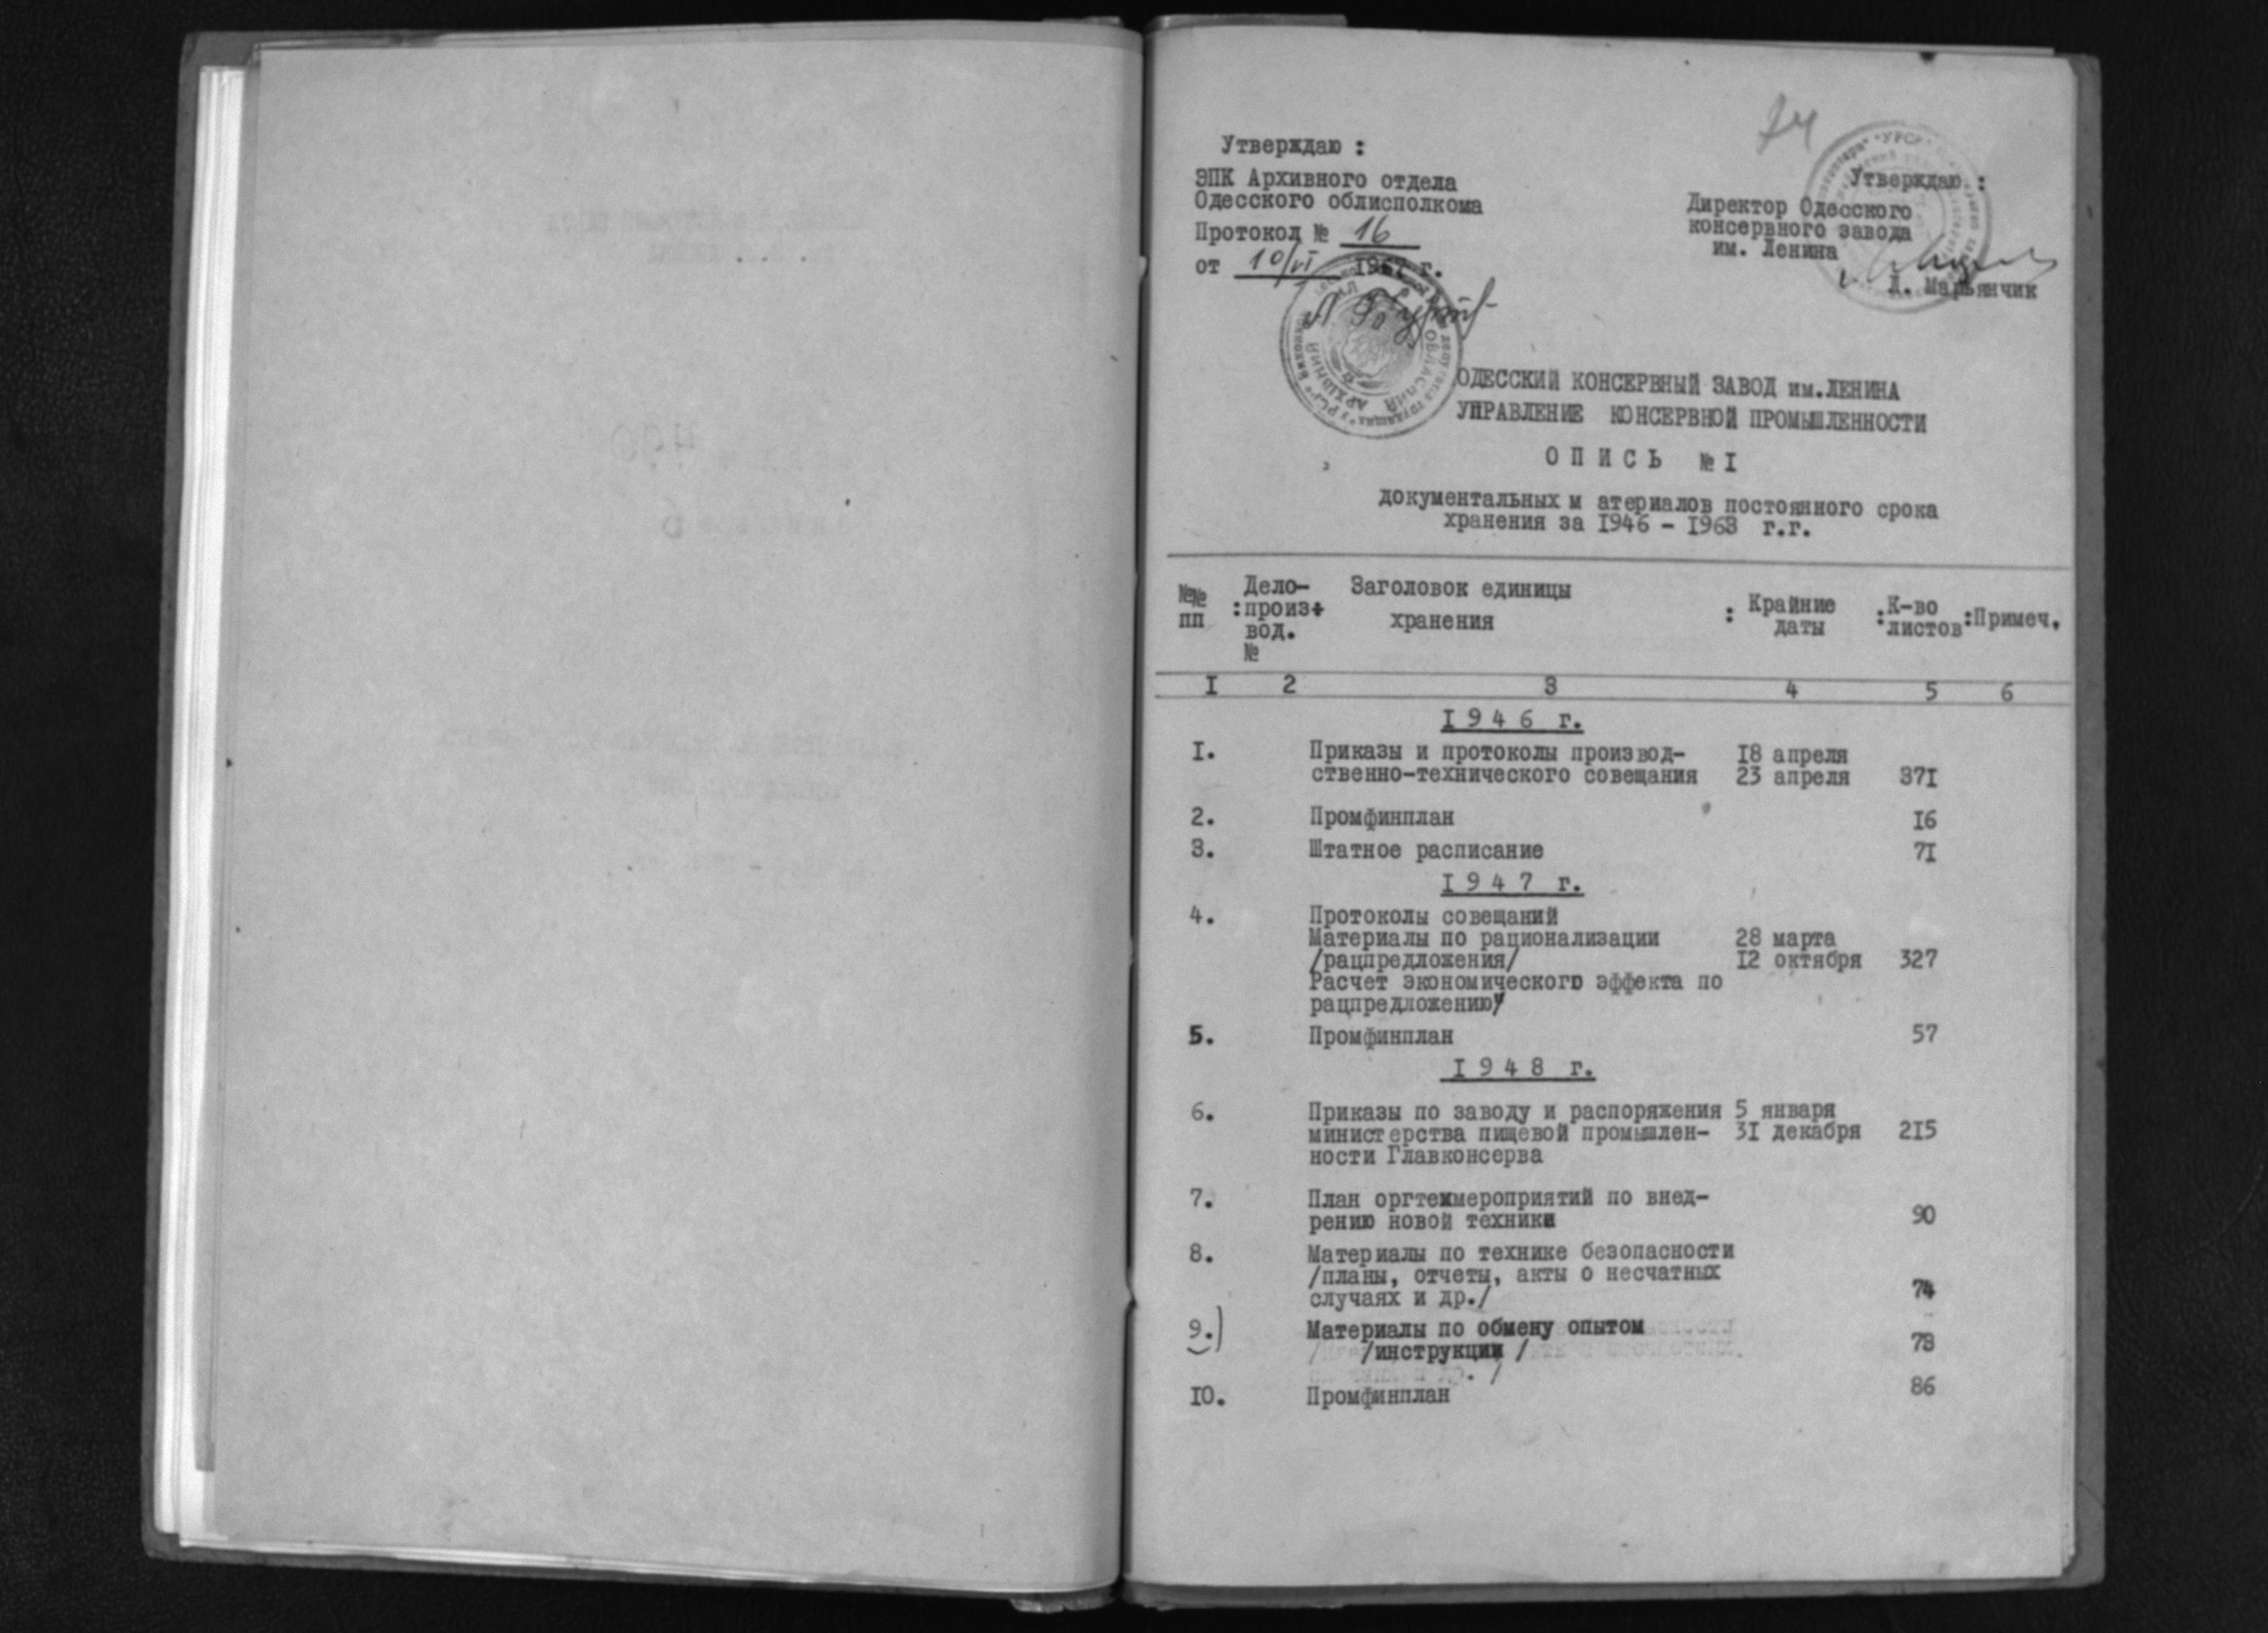 74
Утверждаю :
ЭПК Архивного отдела
Одесского облисполкома
Протокол № 16
от 10/VI 1967 г.
Утверждаю :
Директор Одесского
консервного завода
им. Ленина
Л. Марьянчик
ОДЕССКИЙ КОНСЕРВНЫЙ ЗАВОД им.ЛЕНИНА
УПРАВЛЕНИЕ КОНСЕРВНОЙ ПРОМЫШЛЕННОСТИ
О П И С Ь № I
документальных м атериалов постоянного срока
хранения за I946 - I963 г.г.
№№ пп
:Дело-произ+вод. №
Заголовок единицы хранения
: Крайние даты
:К-во :листов
:Примеч.
I 2 3 4 5 6
I 9 4 6 г.
I. Приказы и протоколы производ- I8 апреля
ственно-технического совещания 23 апреля 37I
2. Промфинплан I6
3. Штатное расписание 7I
I 9 4 7 г.
4. Протоколы совещаний
Материалы по рационализации 28 марта
/рацпредложения/ I2 октября 327
Расчет экономического эффекта по
рацпредложению/
5. Промфинплан 57
I 9 4 8 г.
6. Приказы по заводу и распоряжения 5 января
министерства пищевой промышлен- 3I декабря 2I5
ности Главконсерва
7. План оргтехмероприятий по внед-
рению новой техники 90
8. Материалы по технике безопасности
/планы, отчеты, акты о несчатных
случаях и др./ 74
9.) Материалы по обмену опытом
/инструкции / 73
I0. Промфинплан 86